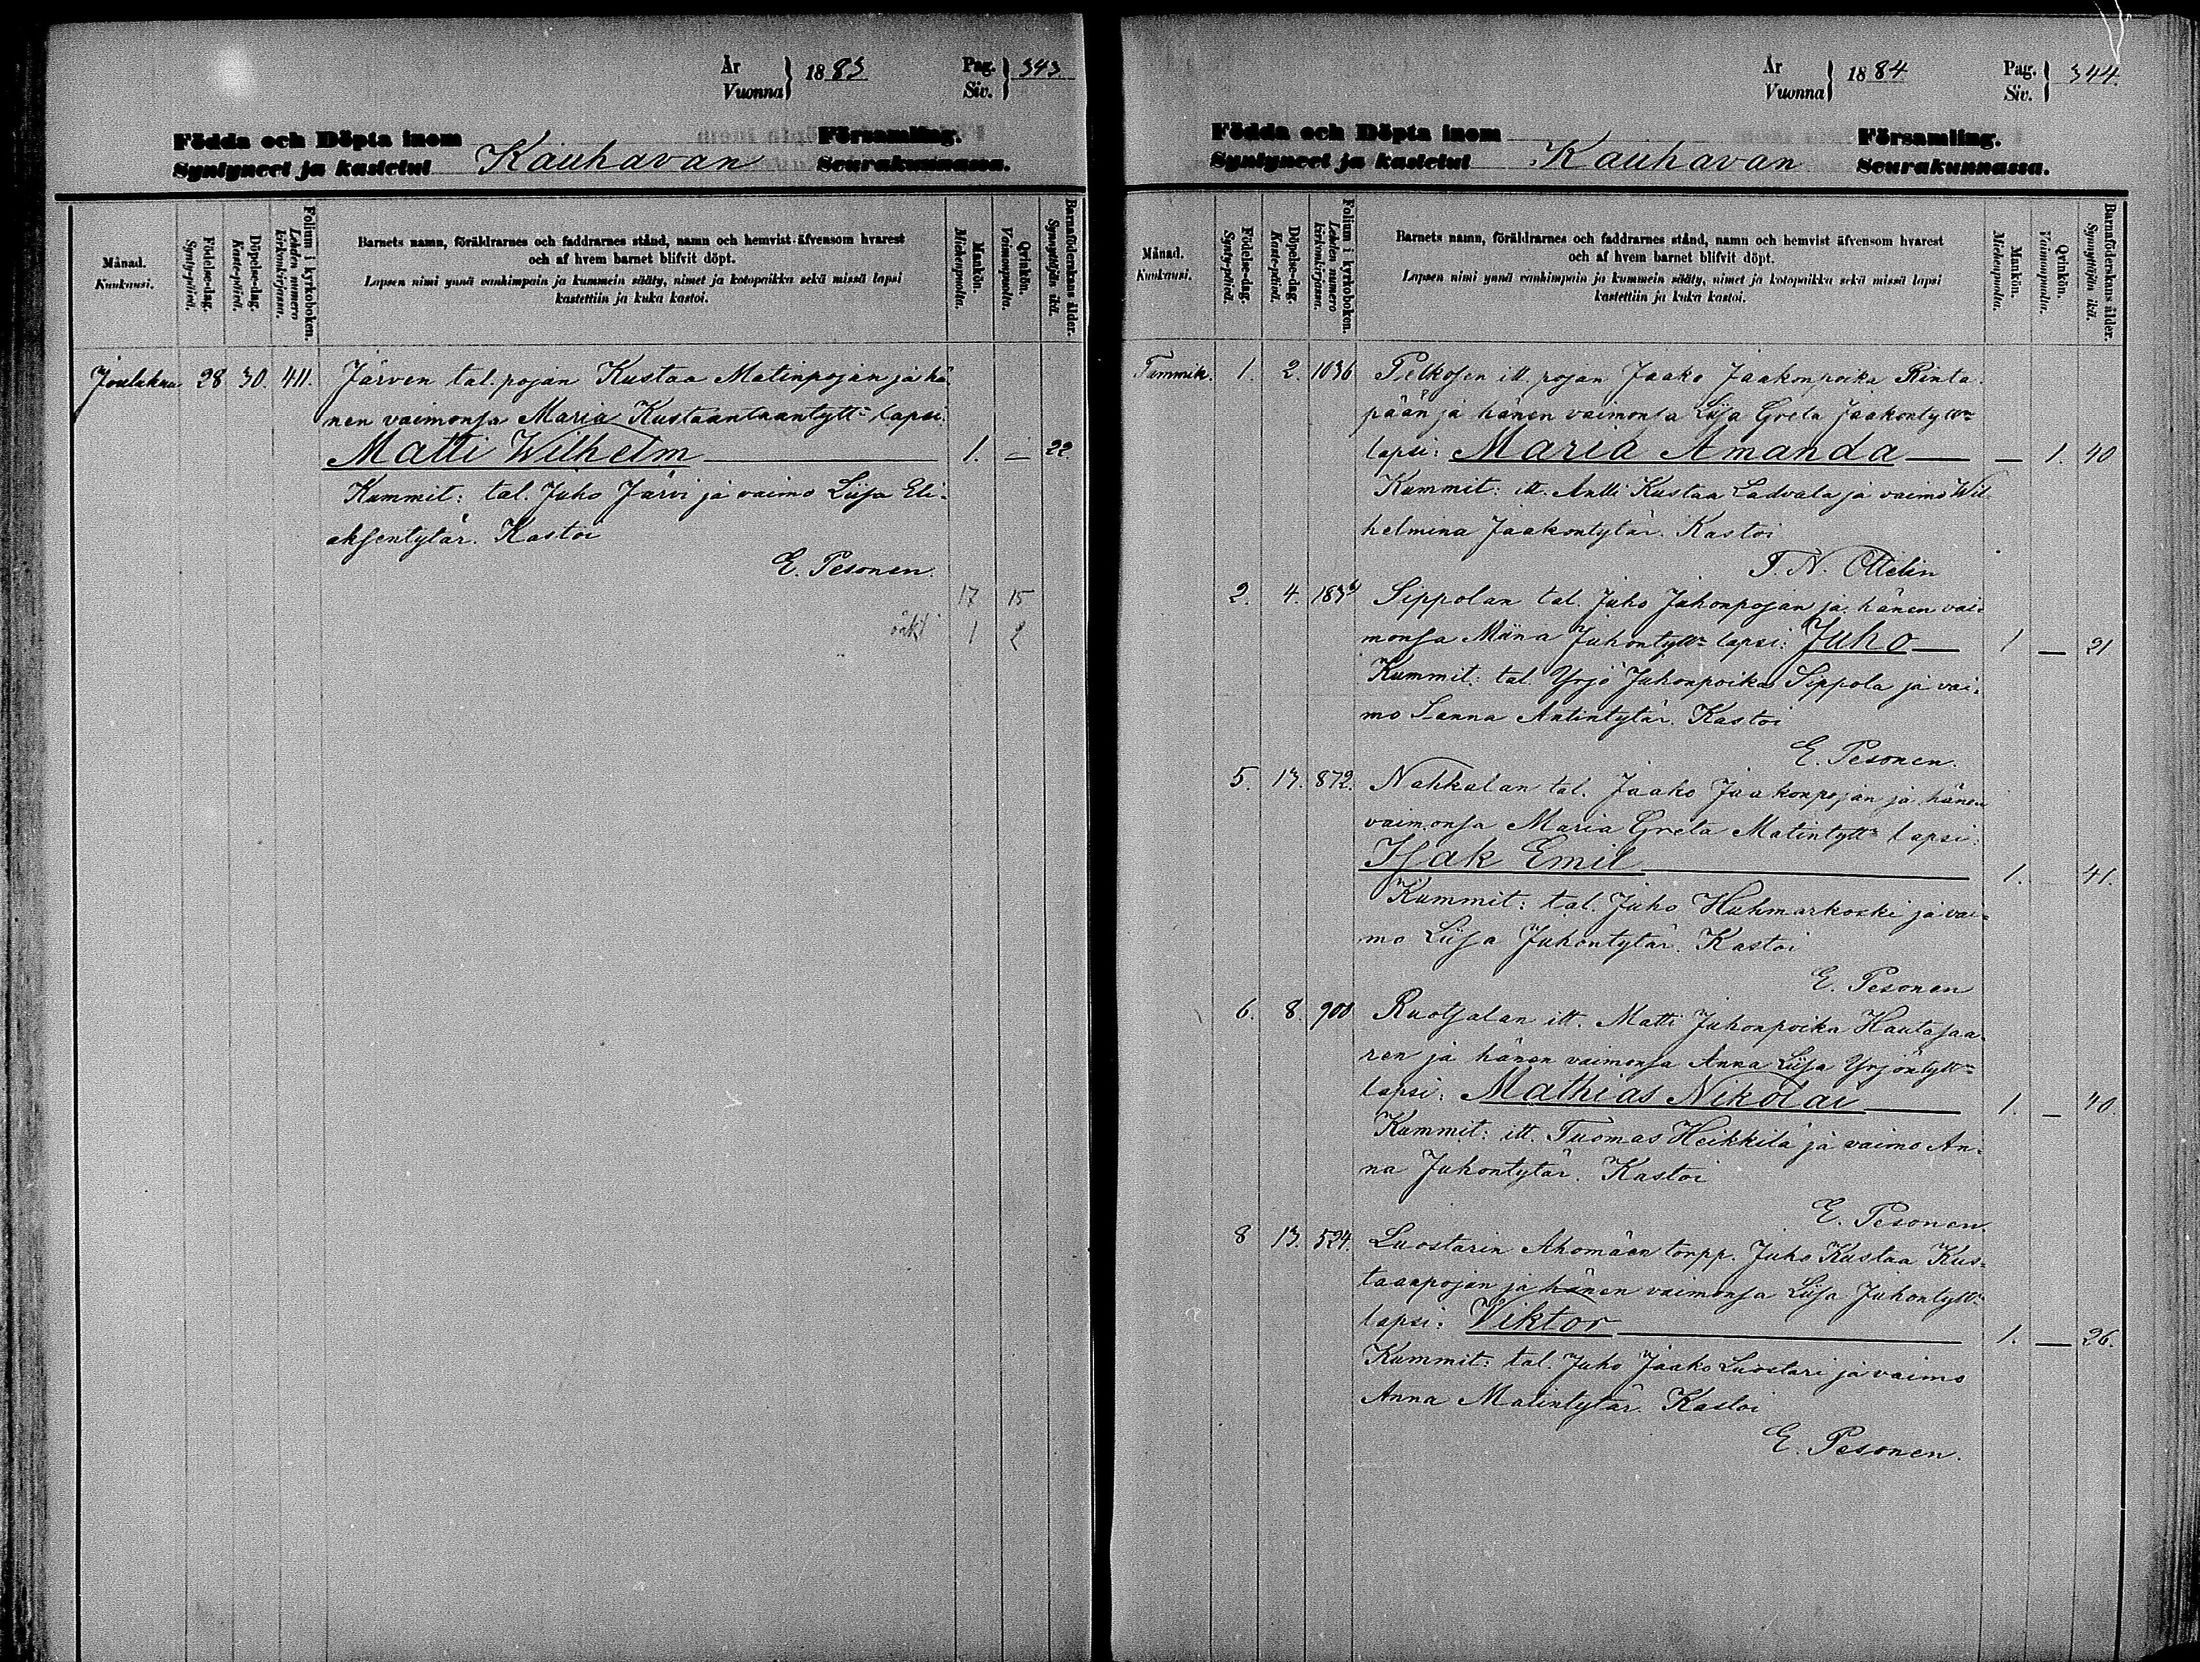 År
Vuonna } 1883 Pag.
Siv. } 343
Födda och Döpta inom Församling.
Syntyneet ja kastetut Kauhavan Seurakunnassa.
Månad.
Kuukausi.
Födelse-dag.
Synty-päivä.
Döpelse-dag.
Kaste-päivä.
Folium i kyrkoboken.
Lehden numero
kirkonkirjassa.
Barnets namn, föräldrarnes och faddrarnes stånd, namn och hemvist äfvensom hvarest
och af hvem barnet blifvit döpt.
Lapsen nimi ynnä vanhimpain ja kummein sääty, nimet ja kotopaikka sekä missä lapsi
kastettiin ja kuka kastoi.
Mankön.
Miehenpuolta.
Qvinkön.
Vaimonpuolta.
Barnaföderskans ålder.
Synnyttäjän ikä.
Joulukuu 28. 30. 411. Järven tal. pojan Kustaa Matinpojan ja hä
nen vaimonsa Maria Kustaantaantytt= lapsi:
Matti Wilhelm 1. — 22.
Kummit: tal. Juho Järvi ja vaimo Liisa Eli-
aksentytär. Kastoi
E. Pesonen.
17 15
oäkt 1 2
År
Vuonna } 1884 Pag.
Siv. } 344.
Födda och Döpta inom Församling.
Syntyneet ja kastetut Kauhavan Seurakunnassa.
Månad.
Kuukausi.
Födelse-dag.
Synty-päivä.
Döpelse-dag.
Kaste-päivä.
Folium i kyrkoboken.
Lehden numero
kirkonkirjassa.
Barnets namn, föräldrarnes och faddrarnes stånd, namn och hemvist äfvensom hvarest
och af hvem barnet blifvit döpt.
Lapsen nimi ynnä vanhimpain ja kummein sääty, nimet ja kotopaikka sekä missä lapsi
kastettiin ja kuka kastoi.
Mankön.
Miehenpuolta.
Qvinkön.
Vaimonpuolta.
Barnaföderskans ålder.
Synnyttäjän ikä.
Tammik. 1. 2. 1036 Pelkosen itt. pojan Jaako Jaakonpoika Rinta-
pään ja hänen vaimonsa Liisa Greta Jaakontytt=
lapsi: Maria Amanda — 1. 40
Kummit: itt. Antti Kustaa Ladvala ja vaimo Wil
helmina Jaakontytär. Kastoi
T. N. Ottelin
2. 4. Sippolan tal. Juho Juhonpojan ja hänen vai-
monsa Miina Juhontytt= lapsi: Juho 1 — 21
Kummit: tal. Yrjö Juhonpoika Sippola ja vai-
mo Sanna Antintytär. Kastoi
E. Pesonen.
5. 13. 872. Nahkalan tal. Jaako Jaakonpojan ja hänen
vaimonsa Maria Greta Matintytt= lapsi:
Isak Emil 1. — 41.
Kummit: tal. Juho Huhmarkoski ja vai=
mo Liisa Juhontytär. Kastoi
E. Pesonen
6. 8. 900 Ruotsalan itt. Matti Juhonpoika Hautasaa-
ren ja hänen vaimonsa Anna Liisa Yrjöntytt=
lapsi: Mathias Nikolai 1. — 40.
Kummit: itt. Tuomas Heikkilä ja vaimo An-
na Juhontytär. Kastoi
E. Pesonen.
8 13. 524. Luostarin Ahomäen torpp. Juho Kustaa Kus-
taanpojan ja hänen vaimonsa Liisa Juhontytt=
lapsi: Viktor 1. — 26.
Kummit: tal. Juho Jaako Luostari ja vaimo
Anna Matintytär. Kastoi
E. Pesonen.